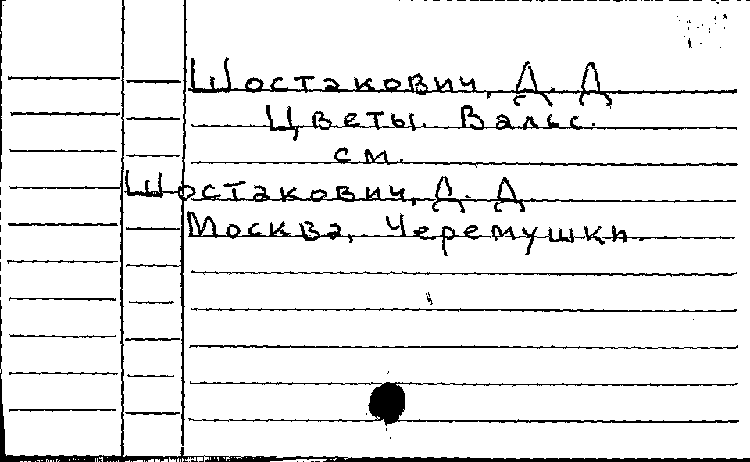 Шостакович, Д. Д
Цветы. Вальс.
см.
Шостакович, Д. Д.
Москва, Черемушки.